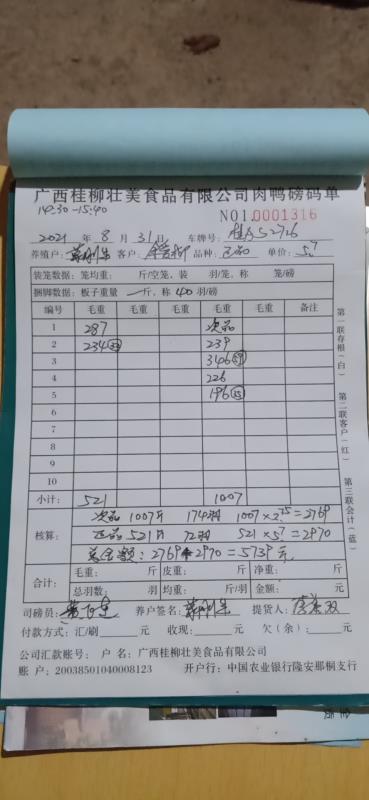 广西桂柳壮美食品有限公司肉鸭磅码单
14:30-15:40
NO1.0001316
2021 年 8 月 31 日 车牌号: 52726
养殖户: 客户: 品种: 正品 单价: 5.7
装笼数据: 笼均重: 斤/空笼、装 羽/笼、称 笼/磅
捆脚数据: 板子重量 一 斤, 称 400 羽/磅
编号 毛重 毛重 毛重 毛重 毛重 毛重 备注
1 287 次品
2 234 239
3 346
4 226
5 196
6
7
8
9
10
小计: 521 1007
次品 1007斤 174羽 1007×2.75=2769
核算: 正品 521斤 72羽 521×5.7=2970
总金额: 2769+2970=5739元
合计: 毛重: 斤 皮重: 斤 净重: 斤
总羽数: 羽 均重: 斤/羽 金额: 元
司磅员: 养户签名: 提货人:
付款方式: 汇/刷 元 收现: 元 欠(余): 元
公司汇款账号: 户 名: 广西桂柳壮美食品有限公司
账 户: 20038501040008123 开户行: 中国农业银行隆安那桐支行
第一联存根(白)
第二联客户(红)
第三联会计(蓝)